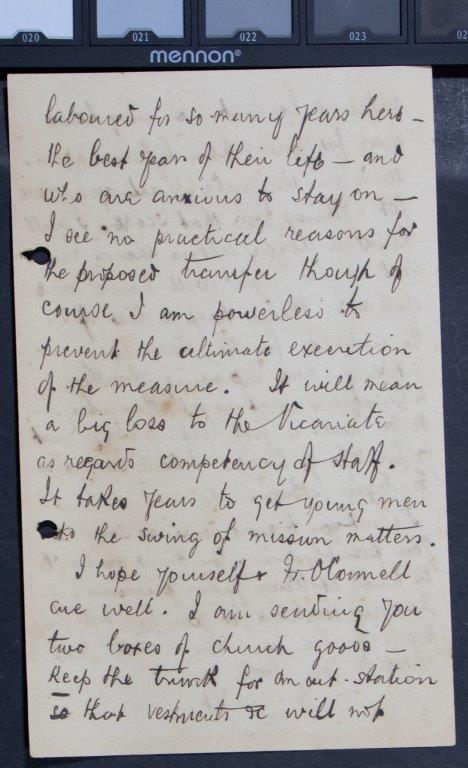 020 021 022 023 02
mennon®
laboured for so many years here –
the best years of their life – and
who are anxious to stay on –
I see no practical reasons for
the proposed transfer though of
course I am powerless to
prevent the ultimate execution
of the measure. It will mean
a big loss to the Vicariate
as regards competency of staff.
It takes years to get young men
into the swing of mission matters.
I hope yourself & Fr. O'Connell
are well. I am sending you
two boxes of church goods –
keep the trunk for an out-station
so that vestments &c will not